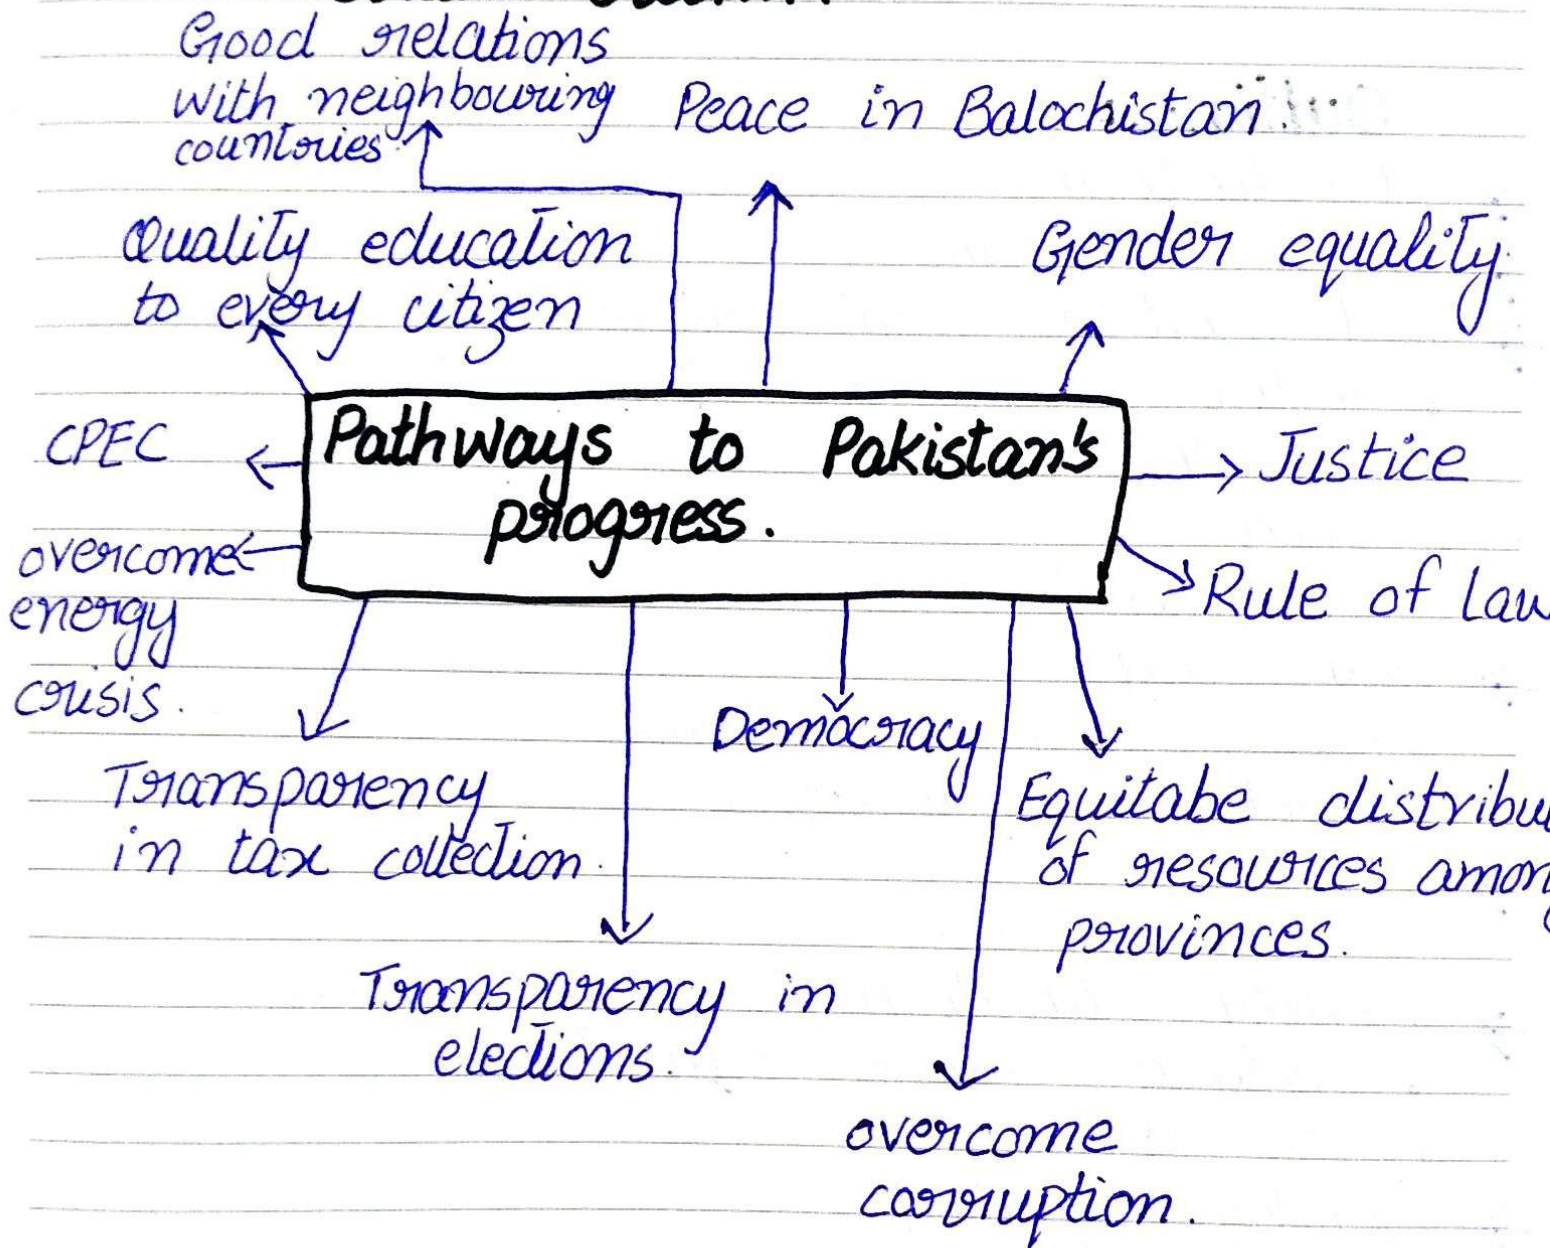 Good relations
with neighbouring
countries
Peace in Balochistan.
Quality education
to every citizen
Gender equality.
CPEC
Pathways to Pakistan's
progress.
Justice
overcome
energy
crisis.
Rule of law
Democracy
Transparency
in tax collection.
Equitabe distribu
of resources among
provinces.
Transparency in
elections.
overcome
corruption.